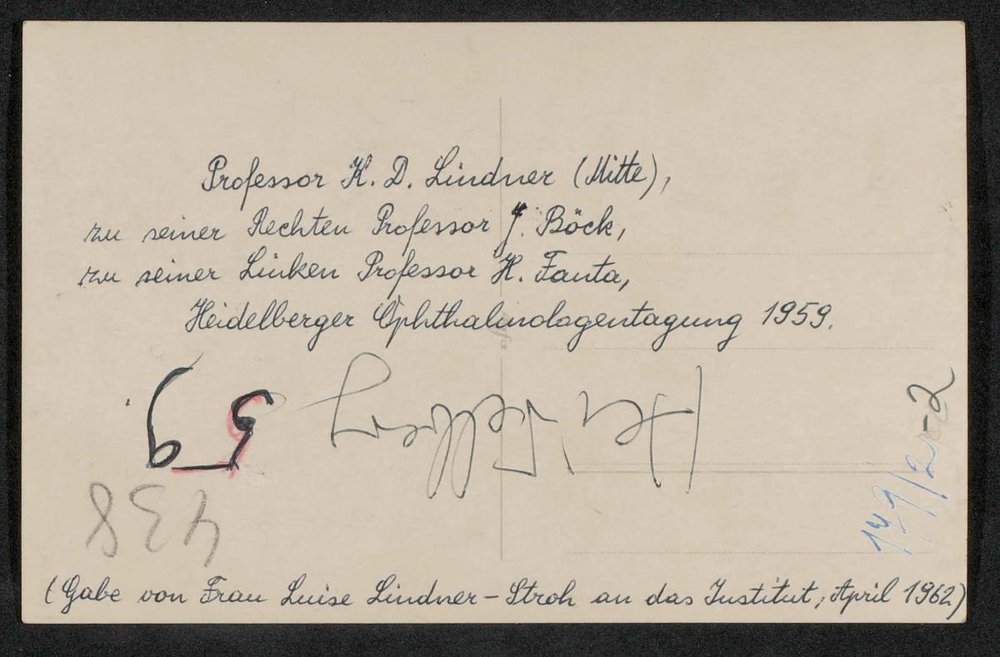 Professor K. D. Lindner (Mitte),
zu seiner Rechten Professor J. Böck,
zu seiner Linken Professor H. Fanta,
Heidelberger Ophthalmologentagung 1959.
Heidelberg
59
438
(Gabe von Frau Luise Lindner-Stroh an das Institut, April 1962)